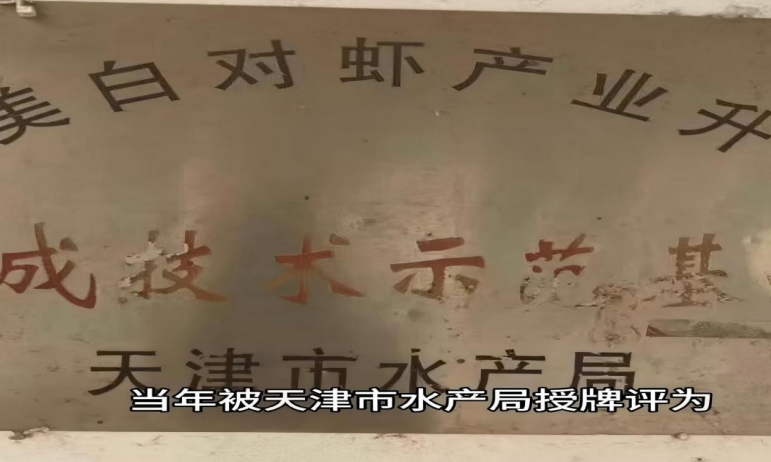 美白对虾产业升
成技术示范基
天津市水产局
当年被天津市水产局授牌评为